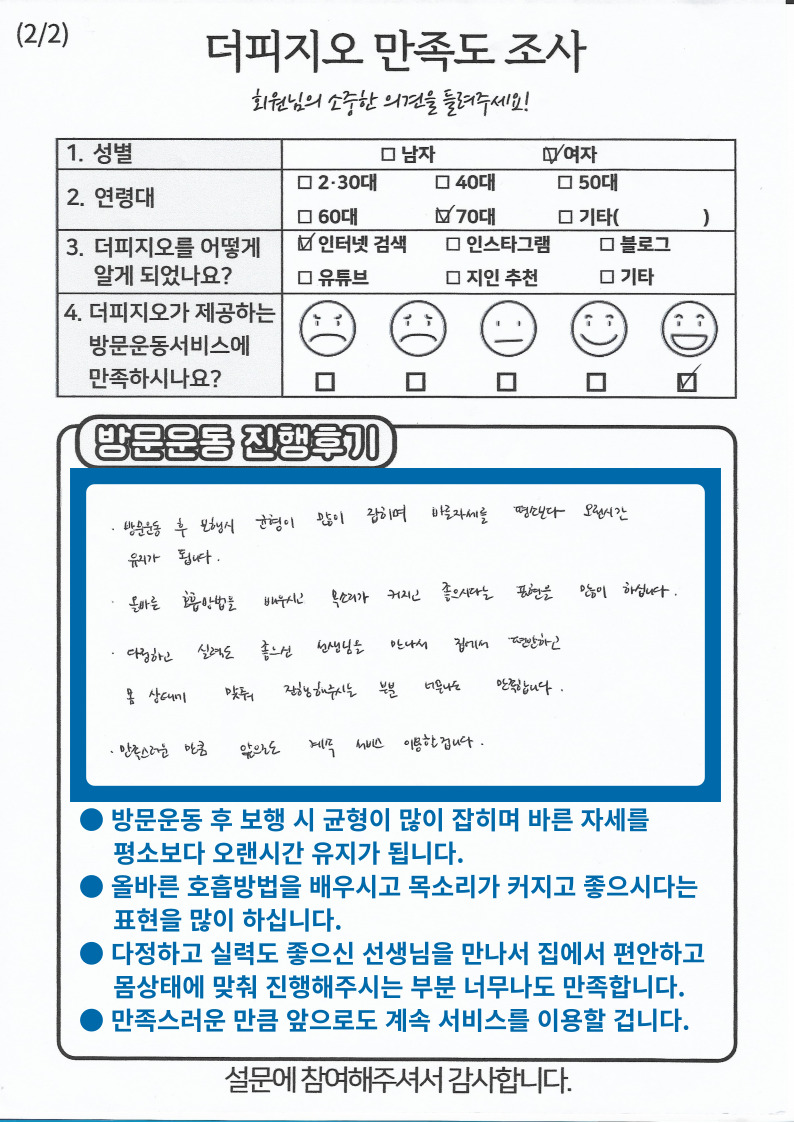 (2/2)
더피지오 만족도 조사
회원님의 소중한 의견을 들려주세요!
1. 성별
□ 남자 ☑ 여자
2. 연령대
□ 2·30대 □ 40대 □ 50대
□ 60대 ☑ 70대 □ 기타( )
3. 더피지오를 어떻게
알게 되었나요?
☑ 인터넷 검색 □ 인스타그램 □ 블로그
□ 유튜브 □ 지인 추천 □ 기타
4. 더피지오가 제공하는
방문운동서비스에
만족하시나요?
방문운동 진행후기
· 방문운동 후 보행시 균형이 많이 잡히며 바른자세를 평소보다 오랜시간
유지가 됩니다.
· 올바른 호흡방법을 배우시고 목소리가 커지고 좋으시다는 표현을 많이 하십니다.
· 다정하고 실력도 좋으신 선생님을 만나서 집에서 편안하고
몸 상태에 맞춰 진행해주시는 부분 너무나도 만족합니다.
· 만족스러운 만큼 앞으로도 계속 서비스 이용할겁니다.
● 방문운동 후 보행 시 균형이 많이 잡히며 바른 자세를
평소보다 오랜시간 유지가 됩니다.
● 올바른 호흡방법을 배우시고 목소리가 커지고 좋으시다는
표현을 많이 하십니다.
● 다정하고 실력도 좋으신 선생님을 만나서 집에서 편안하고
몸상태에 맞춰 진행해주시는 부분 너무나도 만족합니다.
● 만족스러운 만큼 앞으로도 계속 서비스를 이용할 겁니다.
설문에 참여해주셔서 감사합니다.